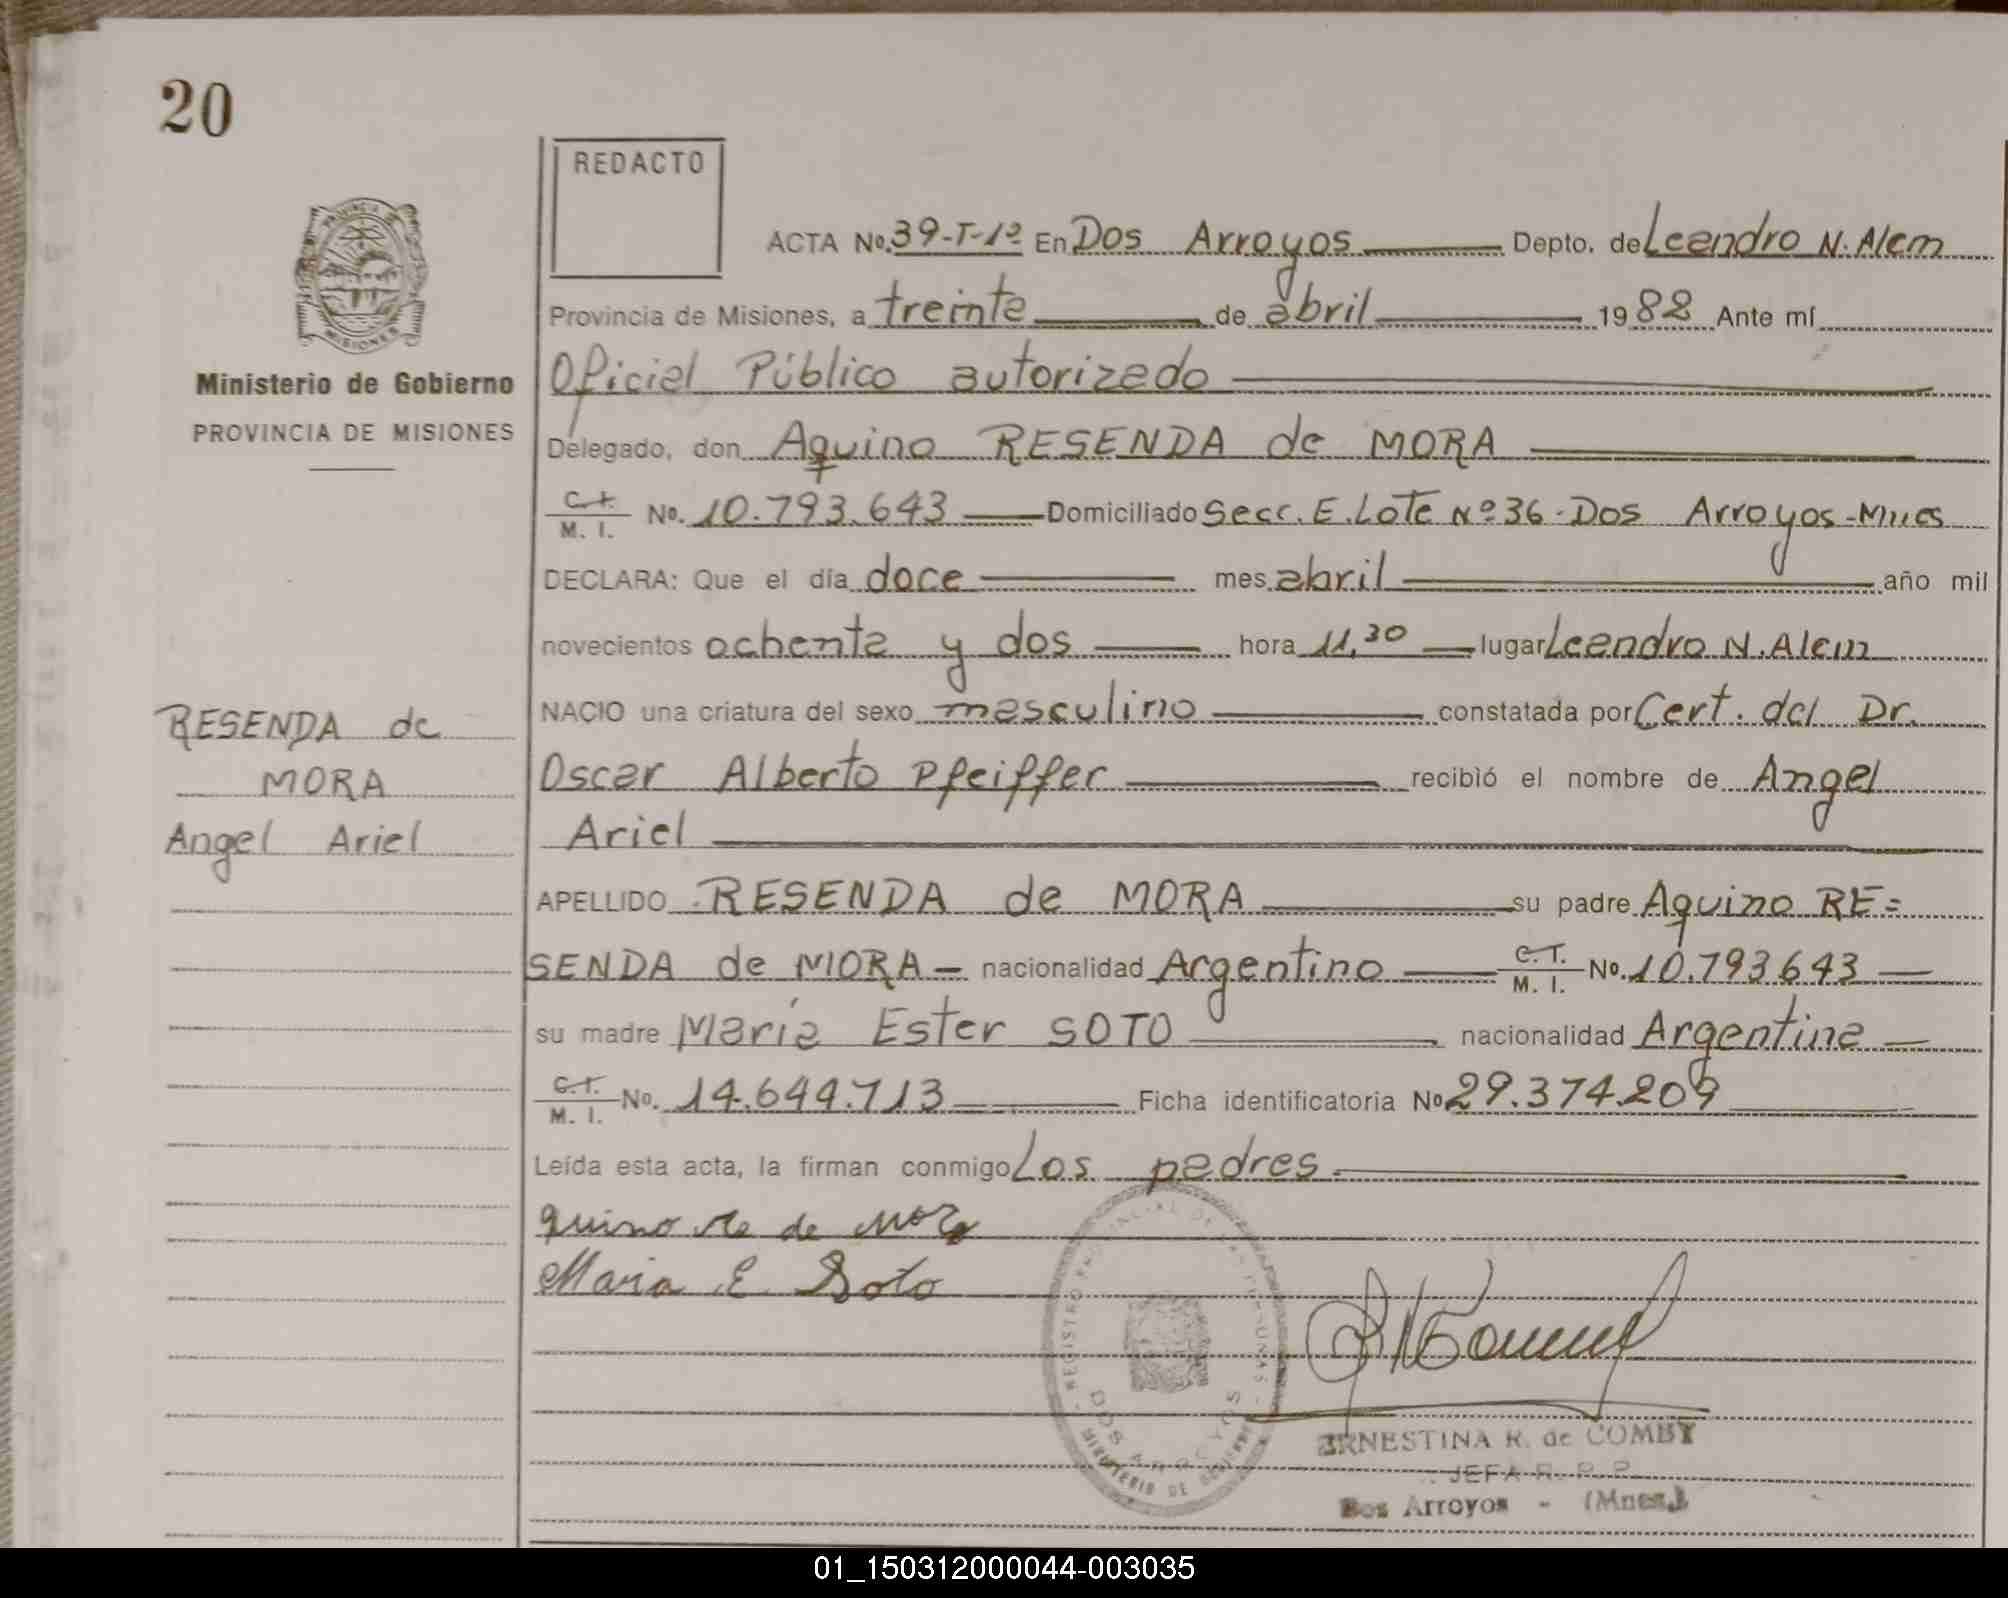 20
REDACTO
ACTA No. 39-T-1º En Dos Arroyos Depto. de Leandro N. Alem
Provincia de Misiones, a treinta de abril 1982 Ante mí
Oficial Público autorizado
Ministerio de Gobierno
PROVINCIA DE MISIONES
Delegado, don Aquino RESENDA de MORA
C.I. M. I. No. 10.793.643 Domiciliado Secc. E. Lote Nº 36 - Dos Arroyos - Mnes
DECLARA: Que el día doce mes abril año mil
novecientos ochenta y dos hora 11,30 lugar Leandro N. Alem
NACIO una criatura del sexo masculino constatada por Cert. del Dr.
Oscar Alberto Pfeiffer recibió el nombre de Angel
Ariel
RESENDA de
MORA
Angel Ariel
APELLIDO RESENDA de MORA su padre Aquino RE=
SENDA de MORA nacionalidad Argentino C.I. M. I. No. 10.793.643
su madre María Ester SOTO nacionalidad Argentina
C.I. M. I. No. 14.644.713 Ficha identificatoria No 29.374.209
Leída esta acta, la firman conmigo Los padres
de Mora
Maria E. Soto
REGISTRO PROVINCIAL DE LAS PERSONAS
DOS ARROYOS
MINISTERIO DE GOBIERNO
ERNESTINA R. de COMBY
JEFA R. P. P.
Dos Arroyos - (Mnes.)
01_150312000044-003035